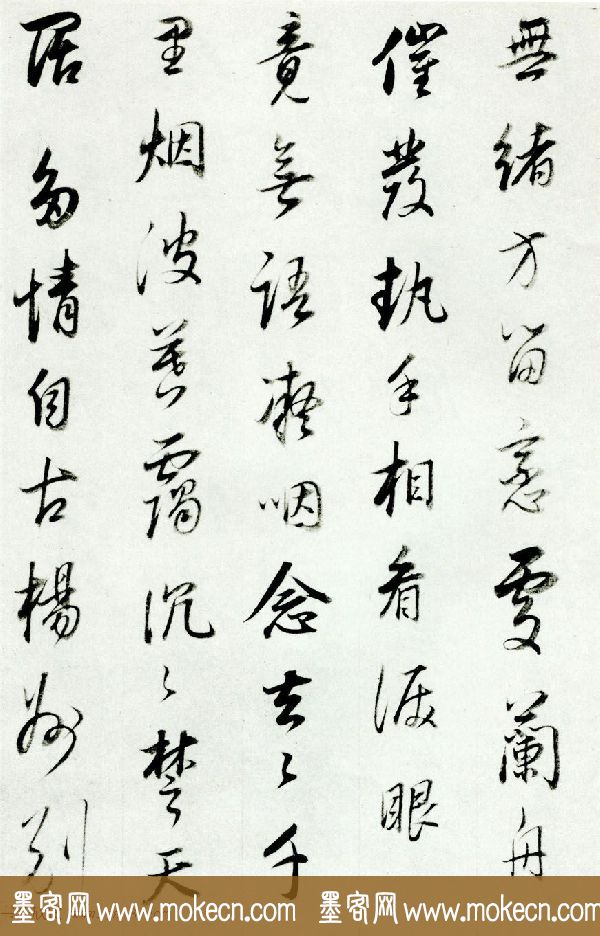 無緒方留戀處蘭舟
催發執手相看淚眼
竟無語凝咽念去々千
里烟波暮靄沉々楚天
闊多情自古傷離別
墨客网 www.mokecn.com 墨客网 www.mokecn.com